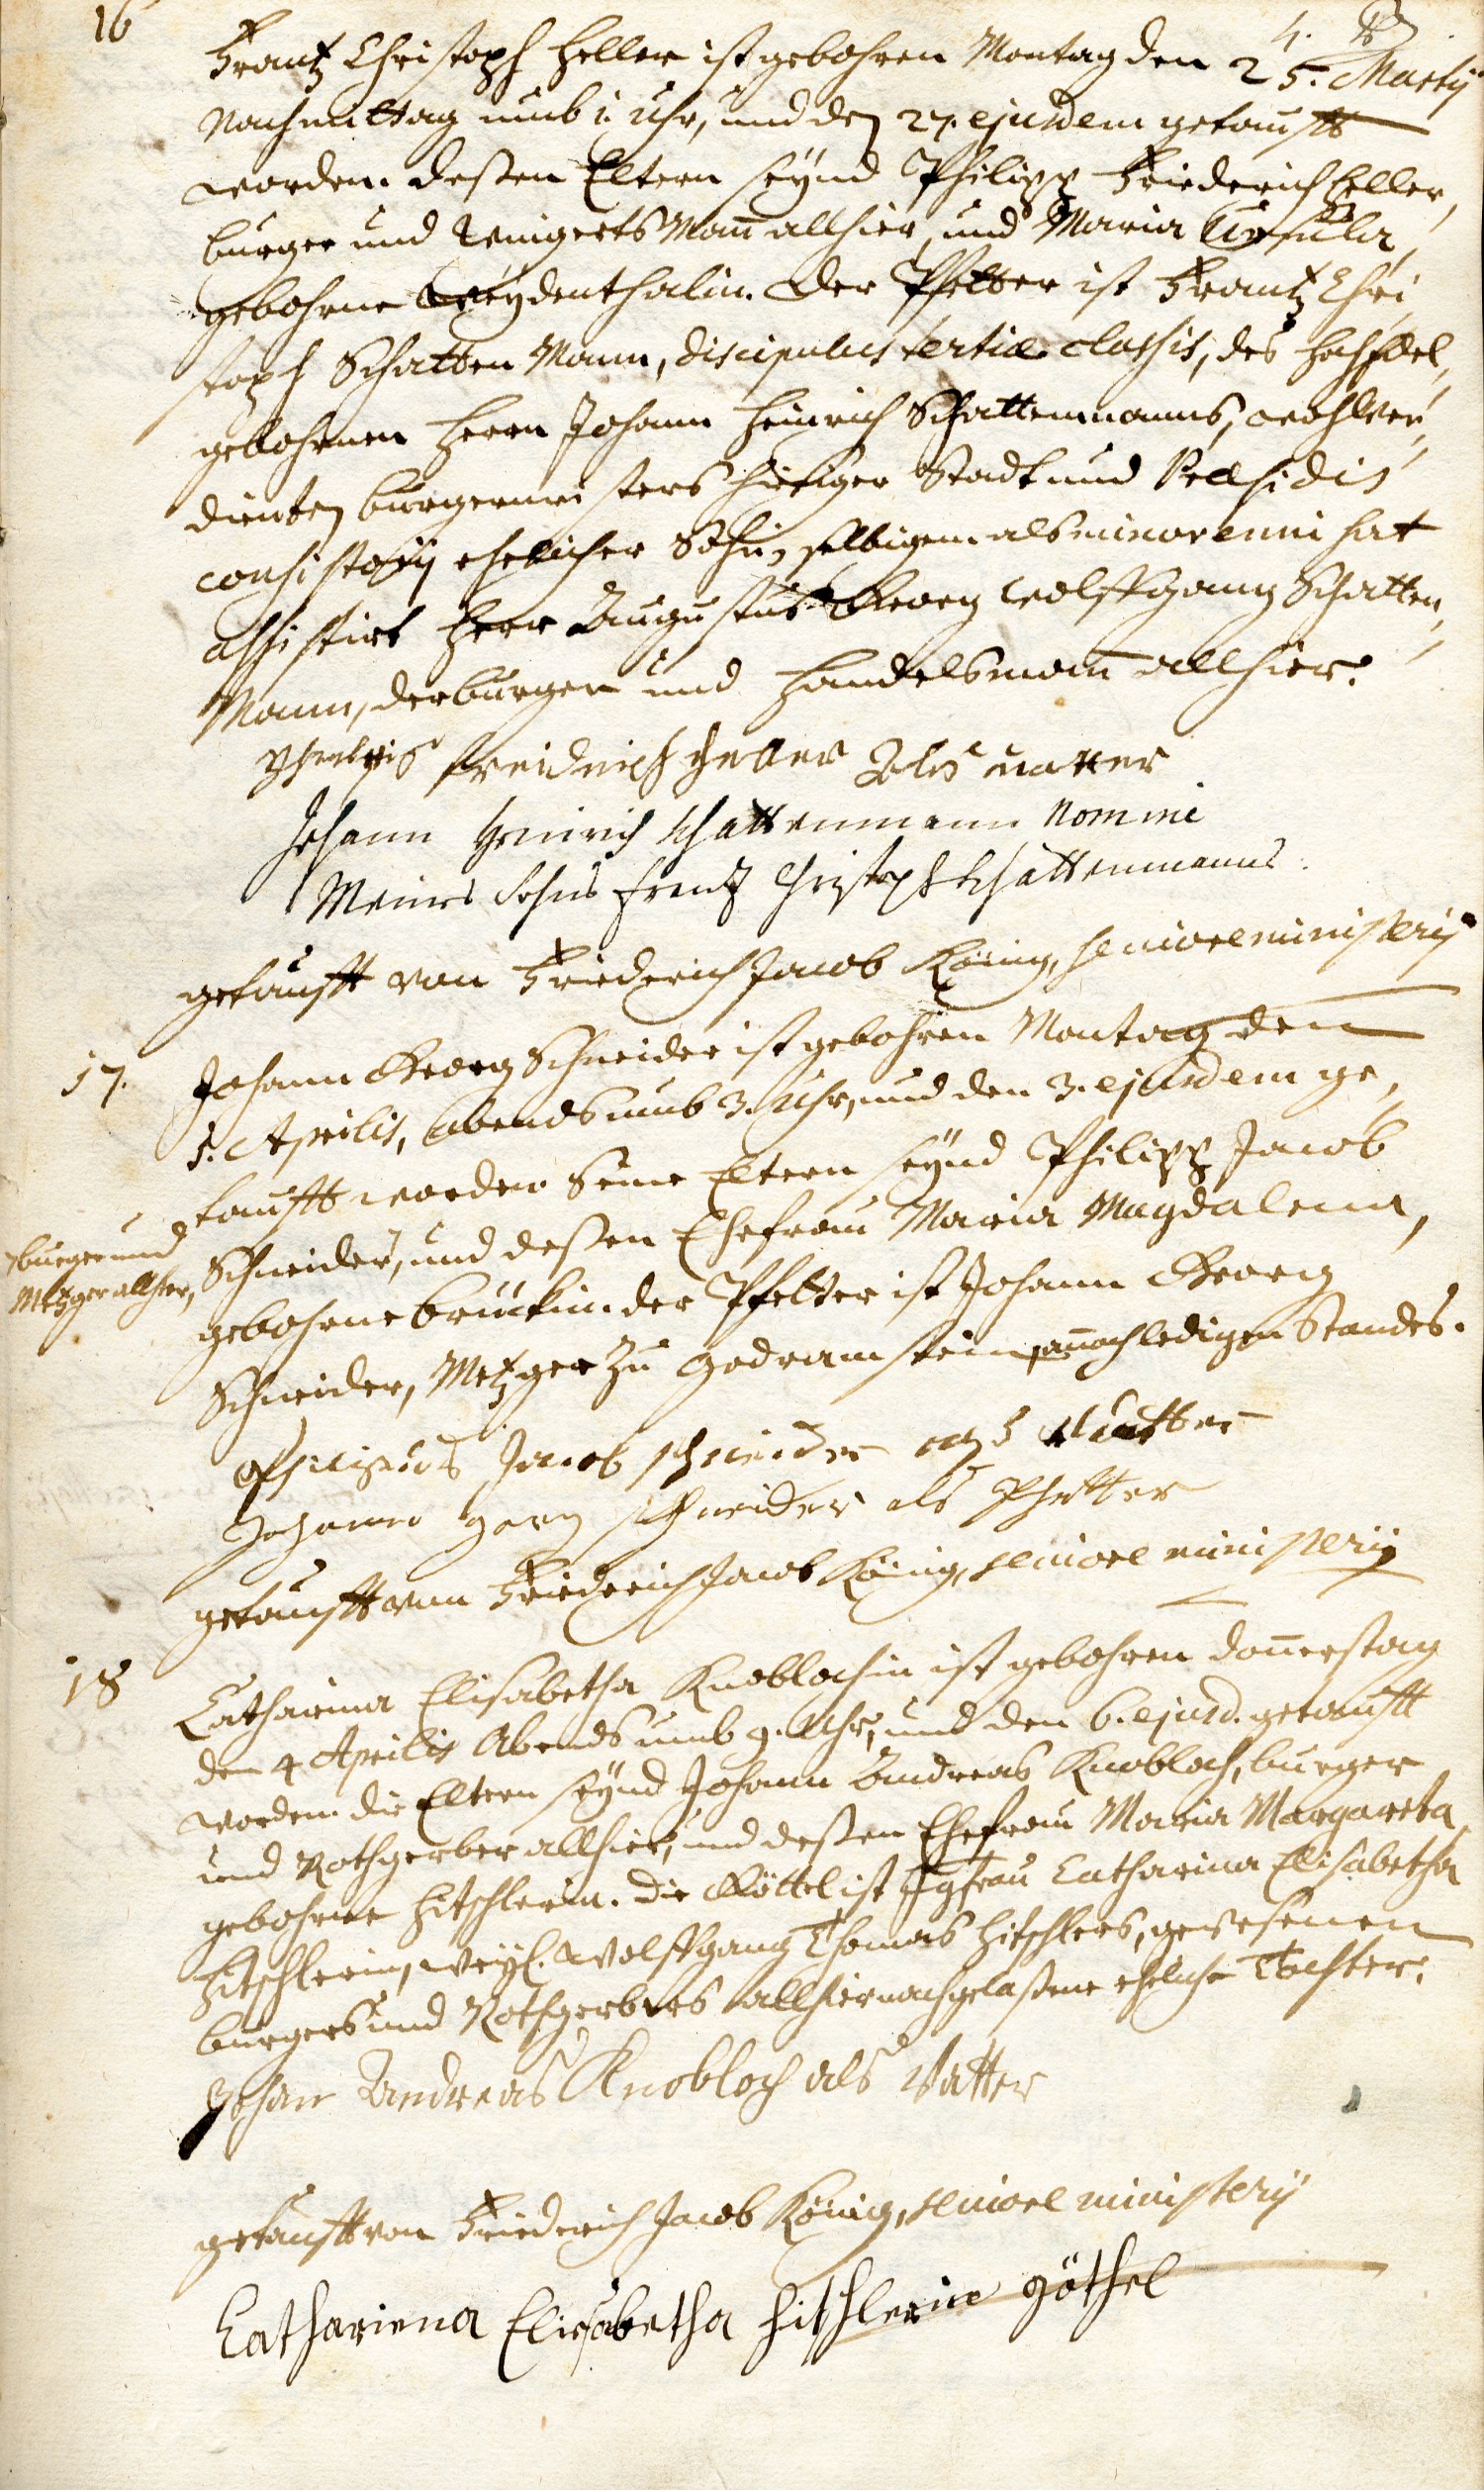 16
Frantz Christoph Heller ist gebohren Montag den 25. Martij
4.
Nachmittag umb 1. Uhr, und den 27. ejusdem getaufft
worden. deßen Eltern seynd Philipp Friederich Heller,
burger und WingertsMañ allhier, und Maria Ursula,
gebohrne Weydenthalin. Der Pfetter ist Frantz Chri,
stoph SchattenMann, discipulus tertiæ classis, des HochEdel,
gebohrnen Herrn Johann Heinrich Schattenmanns, wohlver,
dienten burgermeisters hiesiger Stadt und Præsidis
consistorij ehelicher Sohn, selbigem als minorenni hat
assistirt Herr Augustus Georg Wolffgang Schatten,
Mann, der burger und Handelsmañ allhier.
Friedrich Heller Als vatter
Johann Heinrich Schattenmann Nomine
Meines Sohns Frantz Christoph Schattenmanns.
getaufft von Friederich Jacob König, seniore ministerij
17.
Johann Georg Schneider ist gebohren Montag den
1. Aprilis, abends umb 3. Uhr, und den 3. ejusdem ge,
taufft worden. Seine Eltern seynd Philipp Jacob
Schneider, und deßen Ehefrau Maria Magdalena,
burger und
Metzger allhier,
gebohrne Brückin. der Pfetter ist Johann Georg
Schneider, Metzger zu Godramstein, annoch ledigen Standes.
Jacob Schneider als Vatter
Johann Georg Schneider als Phetter
getaufft von Friederich Jacob König, seniore ministerij
18
Catharina Elisabetha Knoblochin ist gebohren Doñerstag
den 4 Aprilis Abends umb 9. Uhr, und den 6. ejusd. getaufft
worden. die Eltern seynd Johann Andreas Knobloch, burger
und Rothgerber allhier, und deßen Ehefrau Maria Margareta
gebohrne Hitschlerin. Die Göttel ist Jgfrau Catharina Elisabetha
Hitschlerin, weyl. Wolffgang Thomas Hitschlers, gewesenen
burgers und Rothgerbers allhier nachgelaßene eheliche Tochter.
Johan Andreas Knobloch als Vatter
getaufft von Friederich Jacob König, seniore ministerij
Cathariena Elisabetha Hitschlerin göthel